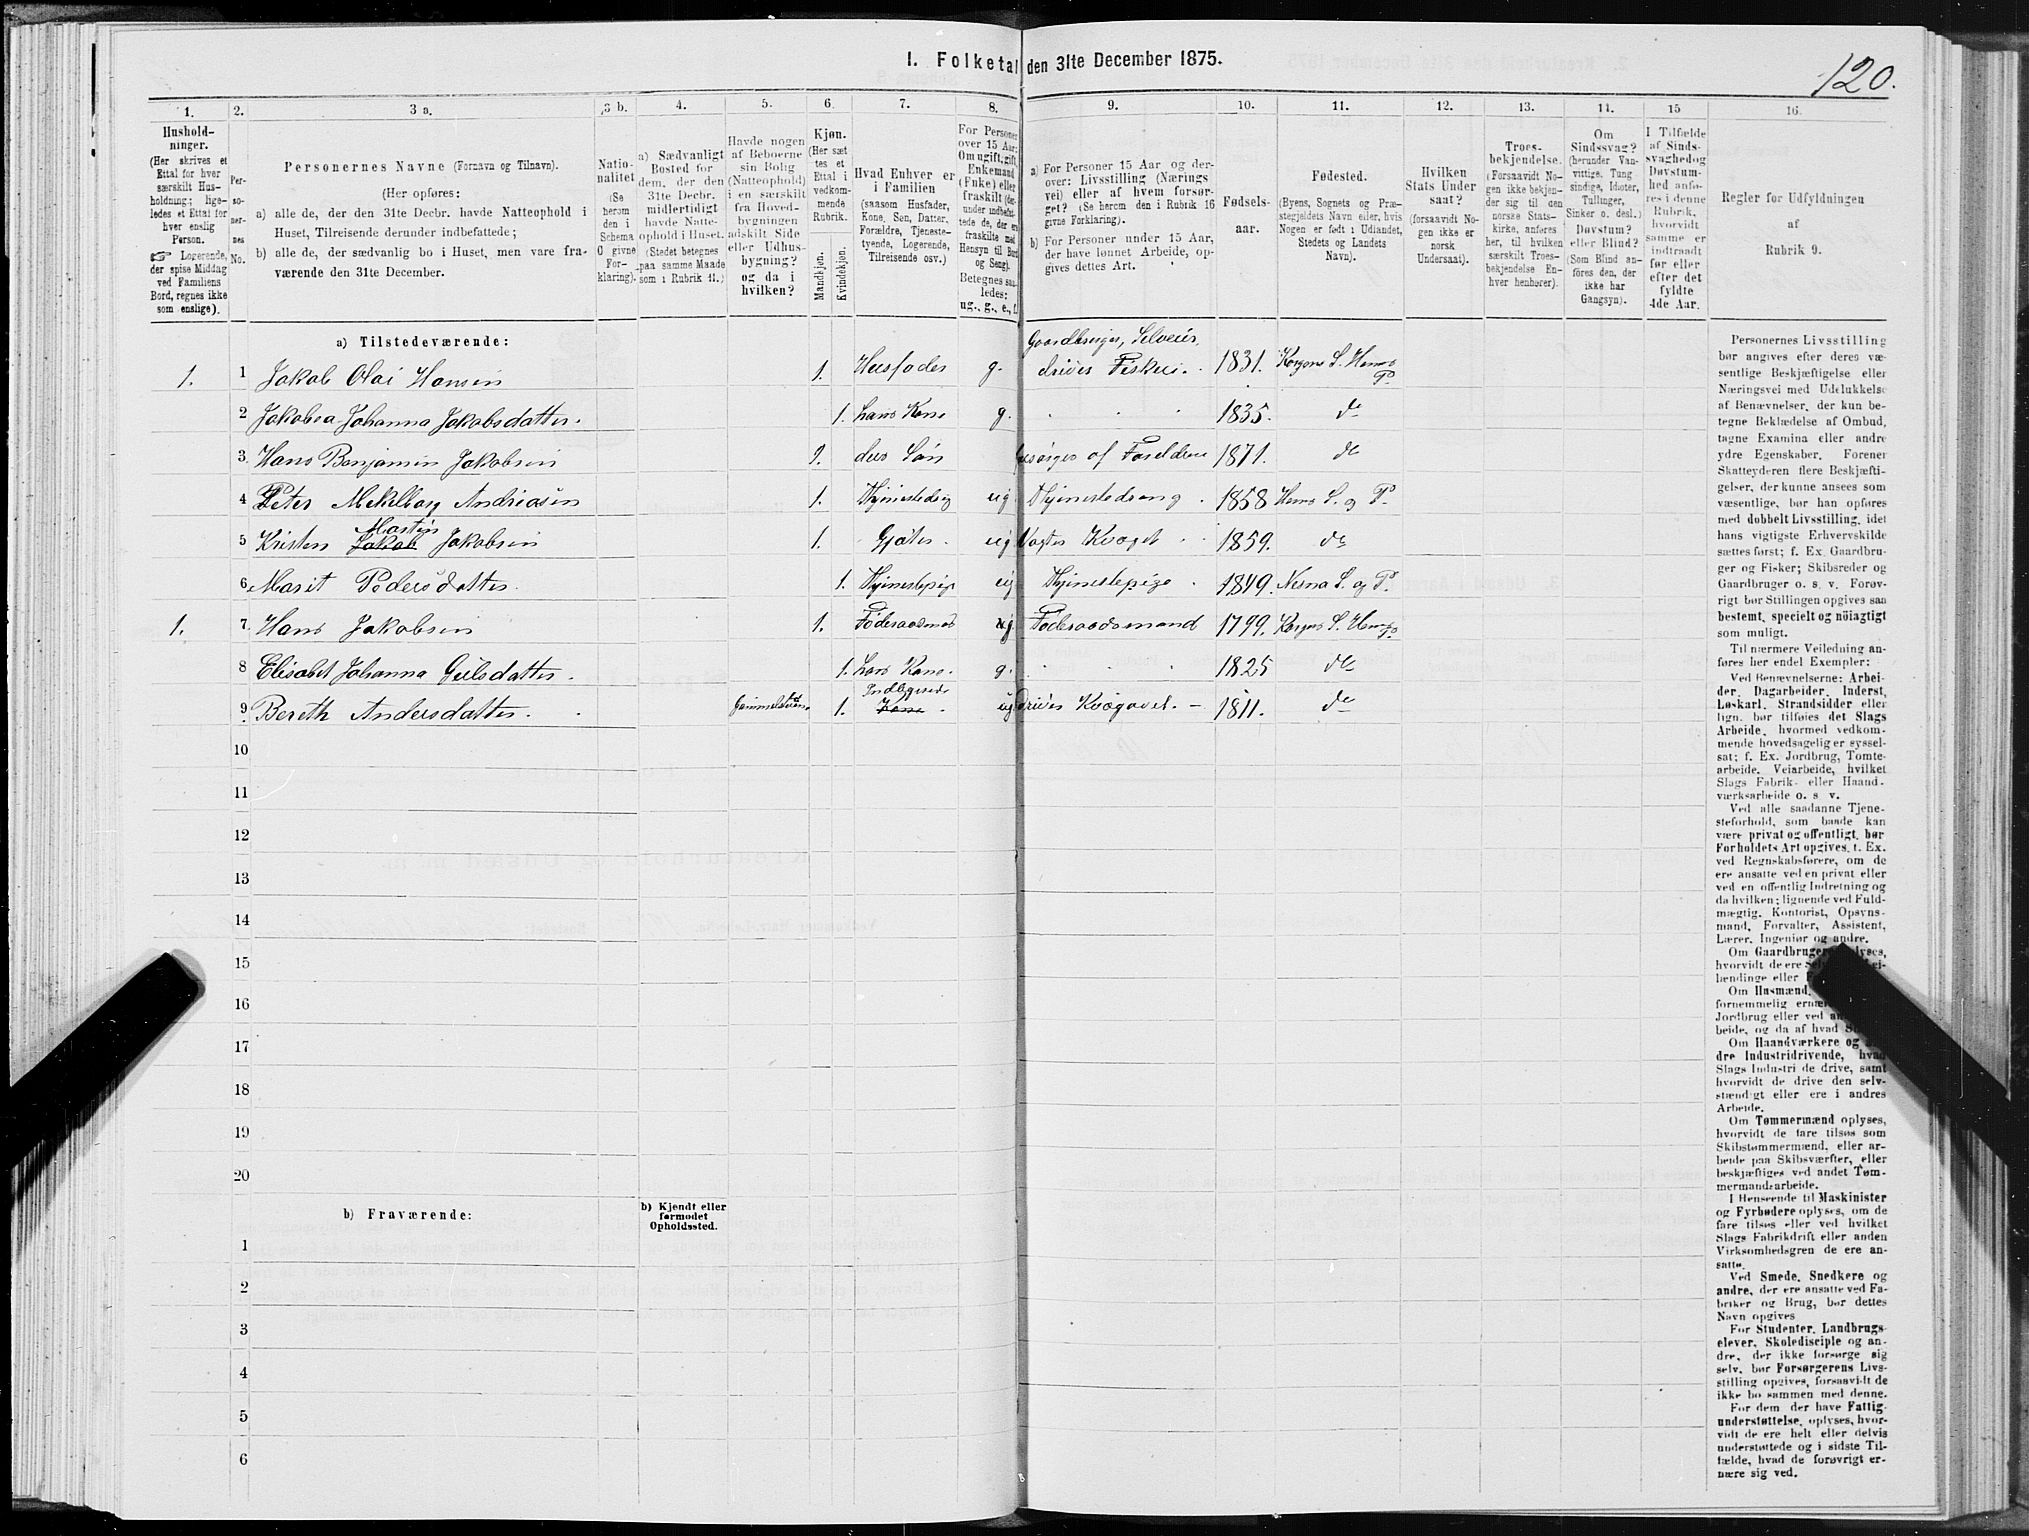 120.
1. Folketal den 31te December 1875.
1. 2. 3 a. 3 b. 4. 5. 6. 7. 8. 9. 10. 11. 12. 13. 14. 15 16.
Hushold-
ninger.
(Her skrives et
Ettal for hver
særskilt Hus-
holdning; lige-
ledes et Ettal for
hver enslig
Person.
☞ Logerende,
der spise Middag
ved Familiens
Bord, regnes ikke
som enslige).
Per-
so-
ner-
nes
No.
Personernes Navne (Fornavn og Tilnavn).
(Her opføres:
a) alle de, der den 31te Decbr. havde Natteophold i
Huset, Tilreisende derunder indbefattede;
b) alle de, der sædvanlig bo i Huset, men vare fra-
værende den 31te December.
Natio-
nalitet
(Se
herom
den i
Schema
O givne
For-
klaring).
a) Sædvanligt
Bosted for
dem, der den
31te Decbr.
midlertidigt
havde Natte-
ophold i Huset.
(Stedet betegnes
paa samme Maade
som i Rubrik 11.)
Havde nogen
af Beboerne
sin Bolig
(Natteophold)
i en særskilt
fra Hoved-
bygningen
adskilt Side
eller Udhus-
bygning?
og da i
hvilken?
Kjøn.
(Her sæt
tes et
Ettal i
vedkom-
mende
Rubrik.
Mandkjøn.
Kvindekjøn.
Hvad Enhver er
i Familien
(saasom Husfader,
Kone, Søn, Datter,
Forældre, Tjeneste-
tyende, Logerende,
Tilreisende osv.)
For Personer
over 15 Aar:
Om ugift, gift,
Enkemand
(Enke) eller
fraskilt (der-
under indbefat-
tede de, der ere
fraskilte med
Hensyn til Bord
og Seng).
Betegnes saa-
ledes:
ug., g., e., f.
a) For Personer 15 Aar og der-
over: Livsstilling (Nærings
vei) eller af hvem forsør-
get? (Se herom den i Rubrik 16
givne Forklaring).
b) For Personer under 15 Aar,
der have lønnet Arbeide, op-
gives dettes Art.
Fødsels-
aar.
Fødested.
(Byens, Sognets og Præ-
stegjeldets Navn eller, hvis
Nogen er født i Udlandet,
Stedets og Landets
Navn).
Hvilken
Stats Under
saat?
(forsaavidt No-
gen ikke er
norsk
Undersaat).
Troes-
bekjendelse.
(Forsaavidt No
gen ikke bekjen-
der sig til den
norske Stats-
kirke, anføres
her, til hvilken
særskilt Troes-
bekjendelse En-
hver henhører).
Om
Sindssvag?
(herunder Van-
vittige, Tung
sindige, Idioter,
Tullinger,
Sinker o. desl.)
Døvstum?
eller Blind?
(Som Blind an-
føres den, der
ikke har
Gangsyn).
I Tilfælde
af Sinds-
svaghed og
Døvstum-
hed anfø-
res i denne
Rubrik,
hvorvidt
samme er
indtraadt
før eller
efter det
fyldte
4de Aar.
Regler for Udfyldningen
af
Rubrik 9.
a) Tilstedeværende:
1. 1 Jakob Olai Hansen 1. Husfader g. Gaardbruger, Selveier, driver Fiskeri. 1831. Korgens S. Hemnes P.
2 Jakobea Johanna Jakobsdatter. 1. hans Kone g. 1835. do
3 Hans Benjamin Jakobsen 1. deres Søn forsørges af Forældrene 1871. do
4 Peter Mekelborg Andreasen 1. Tjenestedreng ug Tjenestedreng 1858 Hemnes S. og P.
5 Kristen Jakob Martin Jakobsen 1. Gjæter. ug Vogter Kvæget 1859. do
6 Marit Pedersdatter. 1. Tjenestepige ug Tjenestepige 1849. Nesna S. og P.
1. 7. Hans Jakobsen 1. Føderaadsmand g Føderaadsmand 1799. Korgens S. Hemnes P.
8 Elisabet Johanna Geilsdatter. 1. hans Kone. g. 1825 do
9 Bereth Andersdatter. 1. Indlogerende Kone ug. driver Kvægavel. 1811. do
10
11
12
13
14
15
16
17
18
19
20
b) Fraværende: b) Kjendt eller
formodet
Opholdssted.
1
2
3
4
5
6
Personernes Livsstilling
bør angives efter deres væ-
sentlige Beskjæftigelse eller
Næringsvei med Udelukkelse
af Benævnelser, der kun be-
tegne Beklædelse af Ombud,
tagne Examina eller andre
ydre Egenskaber. Forener
Skatteyderen flere Beskjæfti-
gelser, der kunne ansees som
væsentlige, bør han opføres
med dobbelt Livsstilling, idet
hans vigtigste Erhvervskilde
sættes først; f. Ex. Gaardbru-
ger og Fisker; Skibsreder og
Gaardbruger o. s. v. Forøv-
rigt bør Stillingen opgives saa
bestemt, specielt og nöiagtigt
som muligt.
Til nærmere Veiledning an-
føres her endel Exempler:
Ved Benævnelserne: Arbei-
der, Dagarbeider, Inderst,
Løskarl, Strandsidder eller
lign. bør tilføies det Slags
Arbeide, hvormed vedkom-
mende hovedsagelig er syssel-
sat; f. Ex. Jordbrug, Tomte-
arbeide, Veiarbeide, hvilket
Slags Fabrik- eller Haand-
værksarbeide o. s. v.
Ved alle saadanne Tjene-
steforhold, som baade kan
være privat og offentligt, bør
Forholdets Art opgives, t. Ex.
ved Regnskabsførere, om de
ere ansatte ved en privat eller
ved en offentlig Indretning og
da hvilken; lignende ved Fuld-
mægtig, Kontorist, Opsyns-
mand, Forvalter, Assistent,
Lærer, Ingeniør og andre.
Om Gaardbrugere
hvorvidt de ere
lændinge eller
Om Husmænd,
fornemmelig
Jordbrug eller ved
beide, og da af hvad
Om Haandværkere og
dre Industridrivende, hvad
Slags Industri de drive, samt
hvorvidt de drive den selv-
stændigt eller ere i andres
Arbeide.
Om Tømmermænd oplyses,
hvorvidt de fare tilsøs som
Skibstømmermænd, eller ar-
beide paa Skibsværfter, eller
beskjæftiges ved andet Tøm-
mermandsarbeide.
I Henseende til Maskinister
og Fyrbødere oplyses, om de
fare tilsøs eller ved hvilket
Slags Fabrikdrift eller anden
Virksomhedsgren de ere an-
satte.
Ved Smede, Snedkere og
andre, der ere ansatte ved Fa-
briker og Brug, bør dettes
Navn opgives
For Studenter, Landbrugs-
elever, Skoledisciple og an-
dre, der ikke forsørge sig
selv, bør Forsørgerens Livs-
stilling opgives, forsaavidt de
ikke bo sammen med denne.
For dem der have Fattig-
understøttelse, oplyses, hvor-
vidt de ere helt eller delvis
understøttede og i sidste Til-
fælde, hvad de forøvrigt er-
nære sig ved.